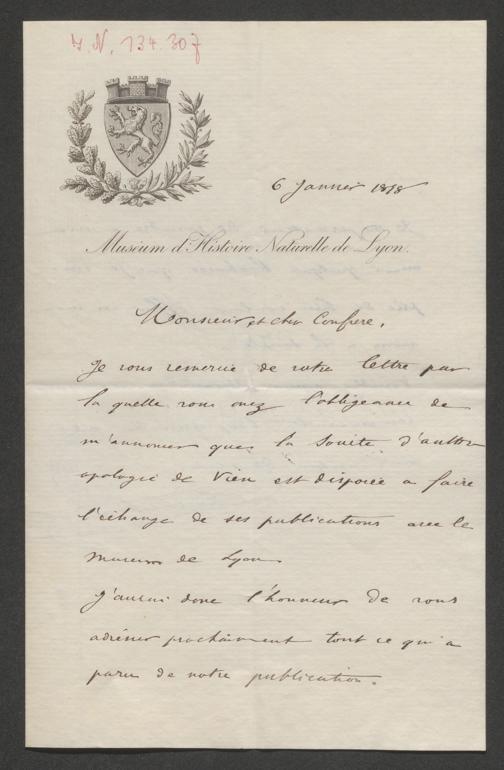 I. N. 134.307
6 Janvier 1878
Muséum d'Histoire Naturelle de Lyon.
Monsieur et cher Confrere,
Je vous remercie de votre lettre par
la quelle vous avez l'obligeance de
m'annoncer que la Societe d'anthro
apologie de Vien est disposée a faire
l'échange de ses publications avec le
museum de Lyon
J'aurai donc l'honneur de vous
adresser prochainement tout ce qui a
paru de notre publication.